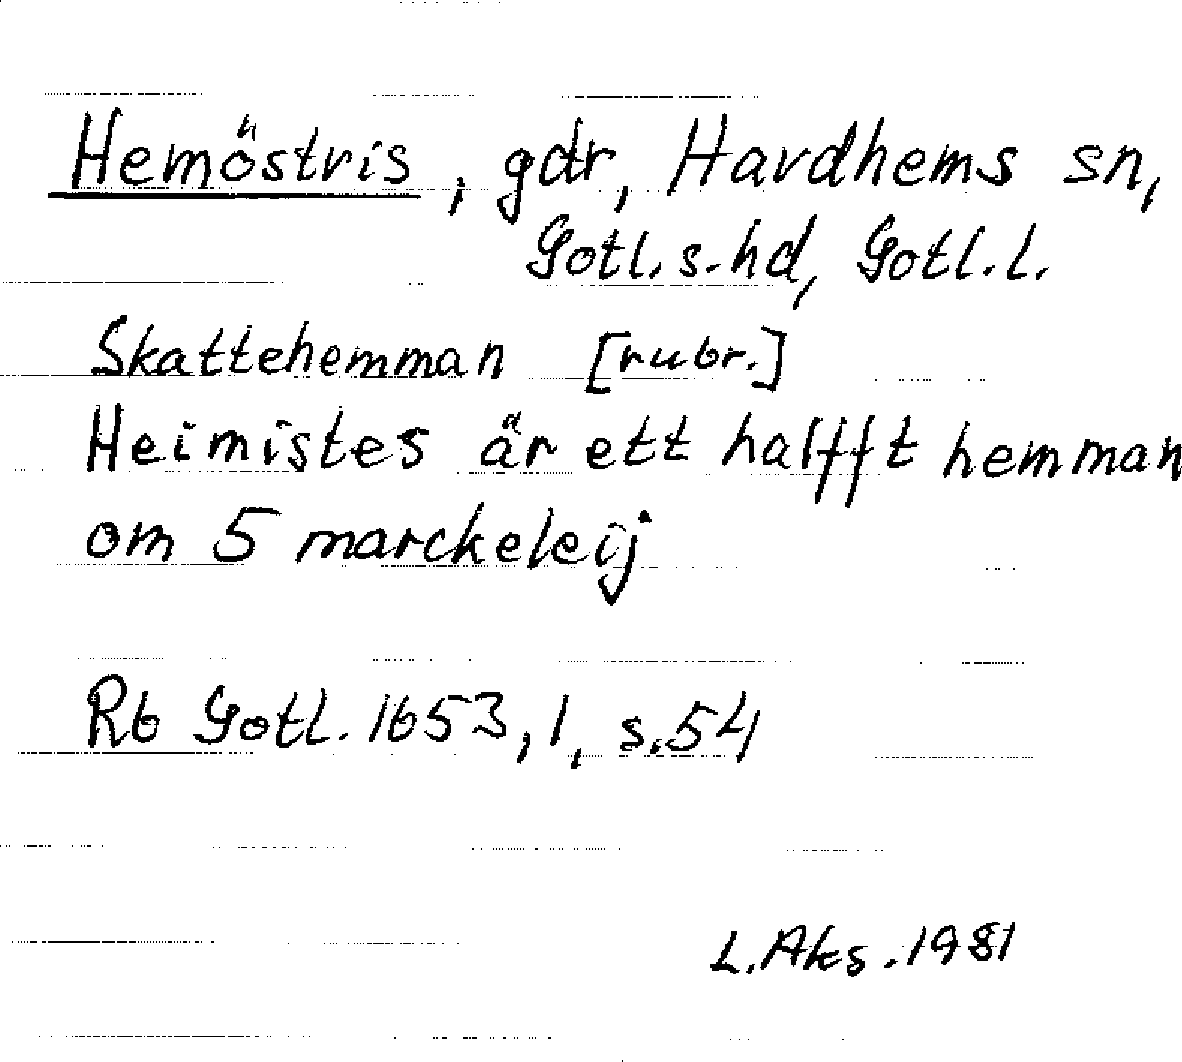 Hemöstris, gdr, Havdhems sn,
Gotl. s. hd, Gotl. l.
Skattehemman [rubr.]
Heimistes är ett halfft hemman
om 5 marckeleij
Rb Gotl. 1653, 1, s. 54
L. Aks. 1981